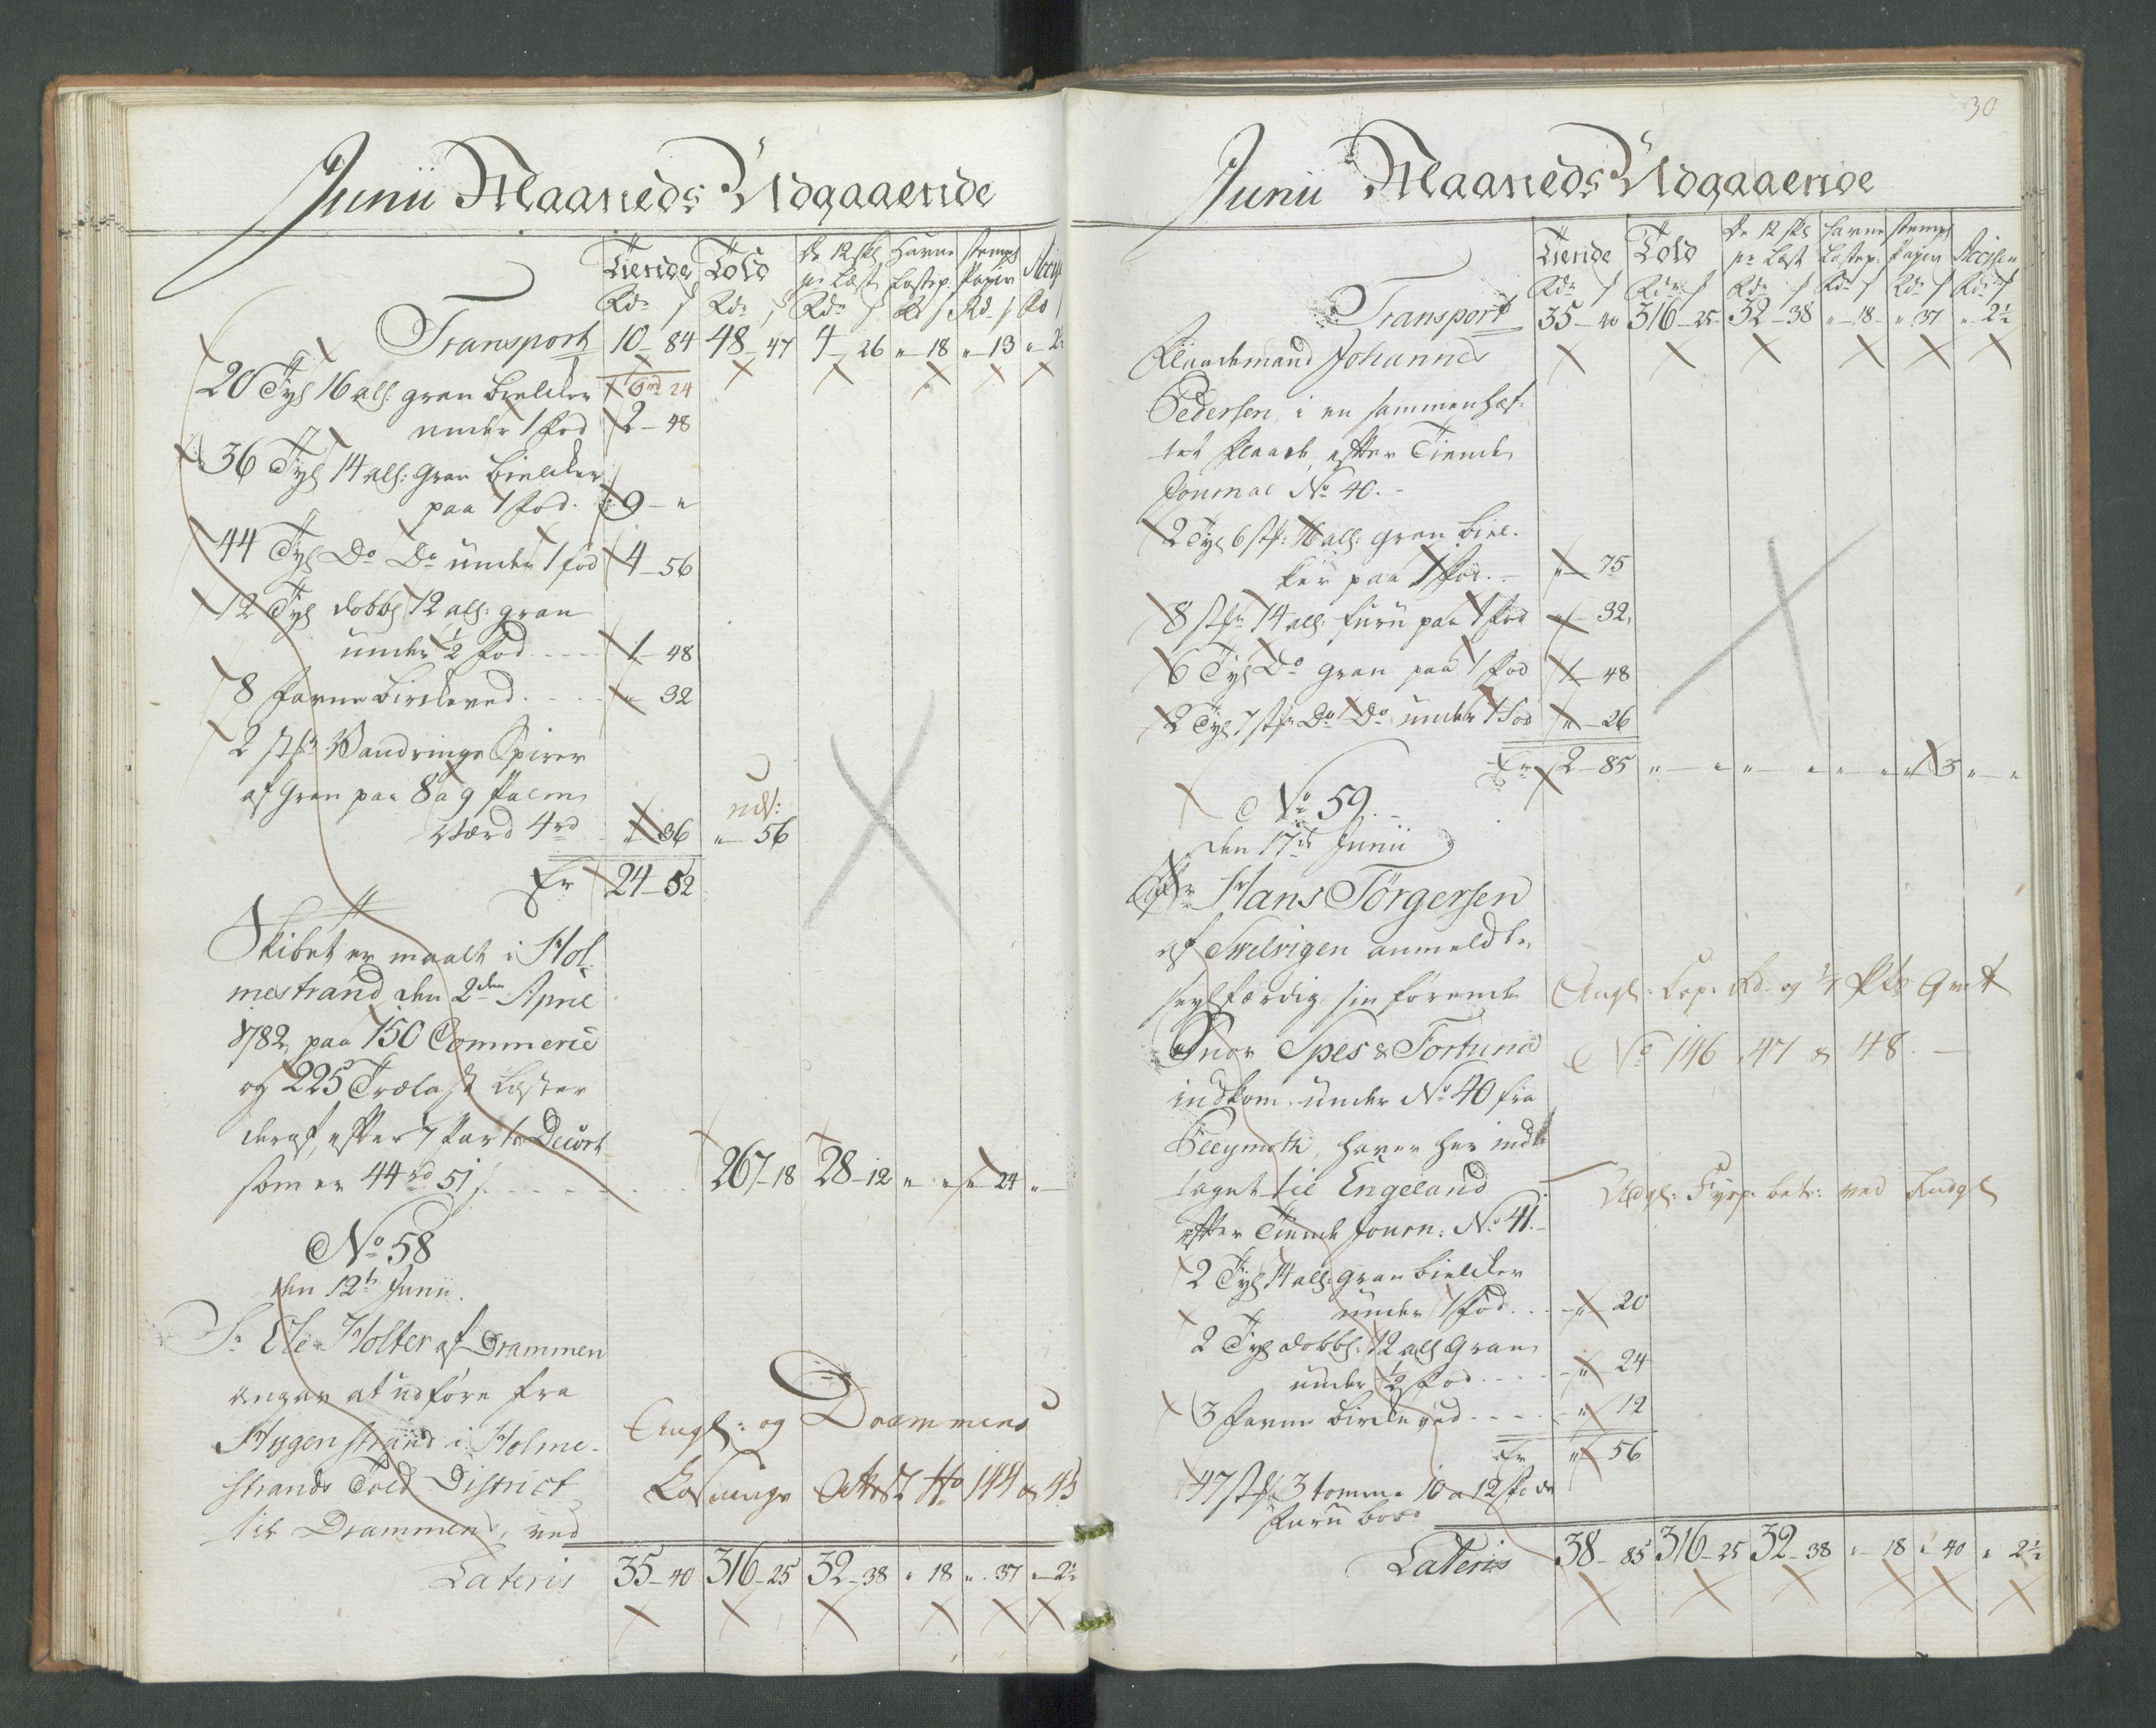 Junii Maaneds Udgaaende
Tiende Told De 12 skl pr Læst Havne Lastep. Stempl Papiir Accise
Rdr s Rdr s Rdr s Rd s Rd s Rd s
Transport 10-84 48-47 4-26 "-18 "-13 "-2½
20 Tyl 16 all: gran Bielcker 6rd 24
under 1 Fod 2-48
36 Tyl 14 all: Gran Bielcker
paa 1 Fod. 9-"
44 Tyl Do Do under 1 fod 4-56
12 Tyl dobbl 12 all: gran
under ½ Fod 1-48
8 Favne Birkeved. " 32
2 stk Vandrings Spirer
af Gran paa 8 a 9 Palm
værd 4rd "-36 "-56
Er 24-52
Skibet er maalt i Hol-
mestrand den 2den April
1782 paa 150 Commerce
og 225 Trælast Læster
deraf, efter 7 Parts Decort
som er 44rd 51 s. 267-18 28-12 " " "-24 "-
No 58
den 12te Junii.
Sr Ole Holter af Drammen
angav at udføre fra
Hygenstrand i Holme-
strands Told District
til Drammen, ved
Engl: og Drammens
Losnings Attest No 144 & 45
Lateris 35-40 316-25 32-38 " 18 "-37 "-2½
30
Junii Maaneds Udgaaende
Tiende Told De 12 skl pr Læst Havne Lastep. Stempl Papiir Accisen
Rdr s Rdr s Rdr s Rdr s Rdr s Rdr s
Transport 35-40 316-25 32-38 "-18- "-37 "-2½
Flaademand Johannes
Pedersen, i en sammenhæf-
tet Flaade, efter Tiende
Journal No 40.-
2 Tyl 6 stk: 16 all: gran Biel-
ker paa 1 Fod.- "-75
8 stkr 14 all: furu paa 1 Fod "-32,
6 Tyl Do gran paa 1 Fod 1-48
2 Tyl 7 stk Do Do under 1 Fod "-26
Er 2-85 "-" "-" "-" "-3 "-"
No 59.-
den 17de Junii
Sr Hans Törgersen
af Svelvigen anmeldte
seylfærdig sin førende
Snov Spes & Fortuna
indkom. under No 40 fra
Pleymoth, haver her ind-
taget til Engeland
efter Tiende Journ: No 41.-
No 146, 47 & 48.-
Udgl: Fyrp. bet: ved Indgl
2 Tyl 14 all: gran Bielcker
under 1 Fod "-20
2 Tyl dobbl: 12 all Gran
under ½ Fod "-24
3 Favne Birkeved " 12
Er "-56
47 stk 3 tomme 10 a 12 Fods
Furu bord
Lateris 38-85 316-25 32-38 "-18 "-40 " 2½